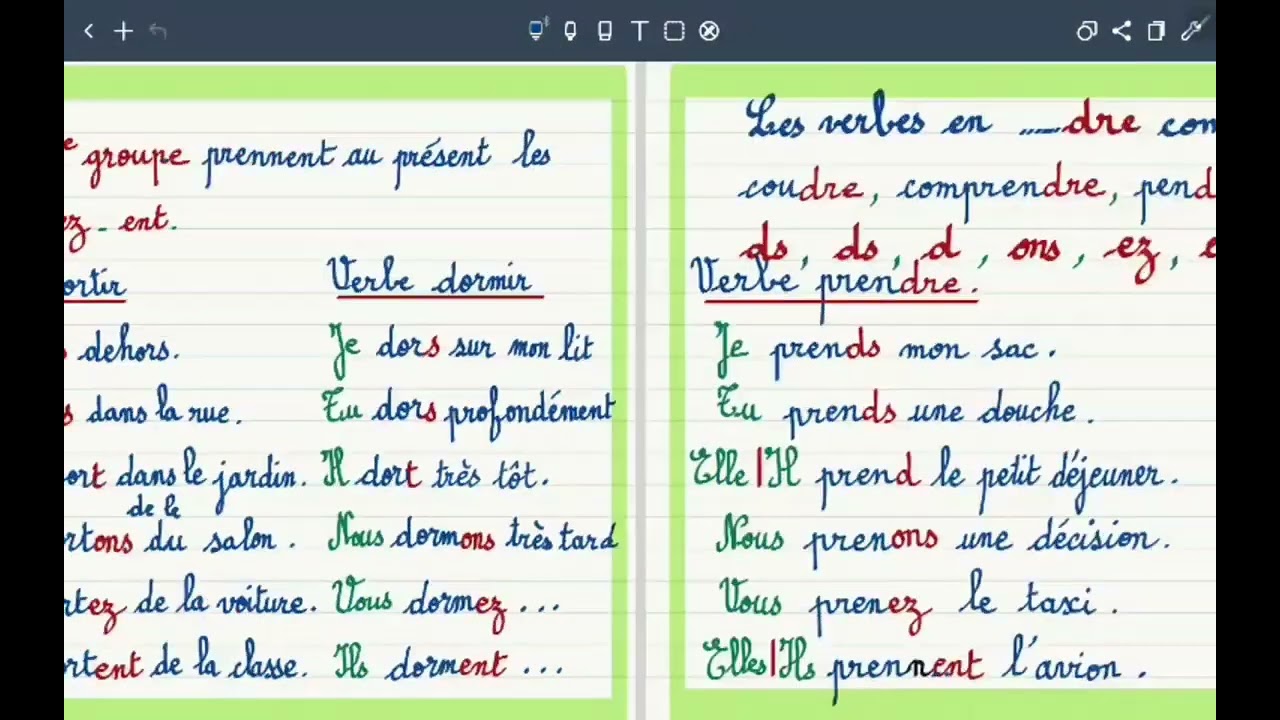 groupe prennent au présent les
ez - ent.
ortir
dehors.
s dans la rue.
ort dans le jardin.
de la
rtons du salon.
rtez de la voiture.
rtent de la classe.
Verbe dormir
Je dors sur mon lit
Tu dors profondément
Il dort très tôt.
Nous dormons très tard
Vous dormez ...
Ils dorment ...
Les verbes en ......dre com
coudre, comprendre, pend
ds, ds, d, ons, ez, e
Verbe prendre.
Je prends mon sac.
Tu prends une douche.
Elle|Il prend le petit déjeuner.
Nous prenons une décision.
Vous prenez le taxi.
Elles|Ils prennent l'avion.